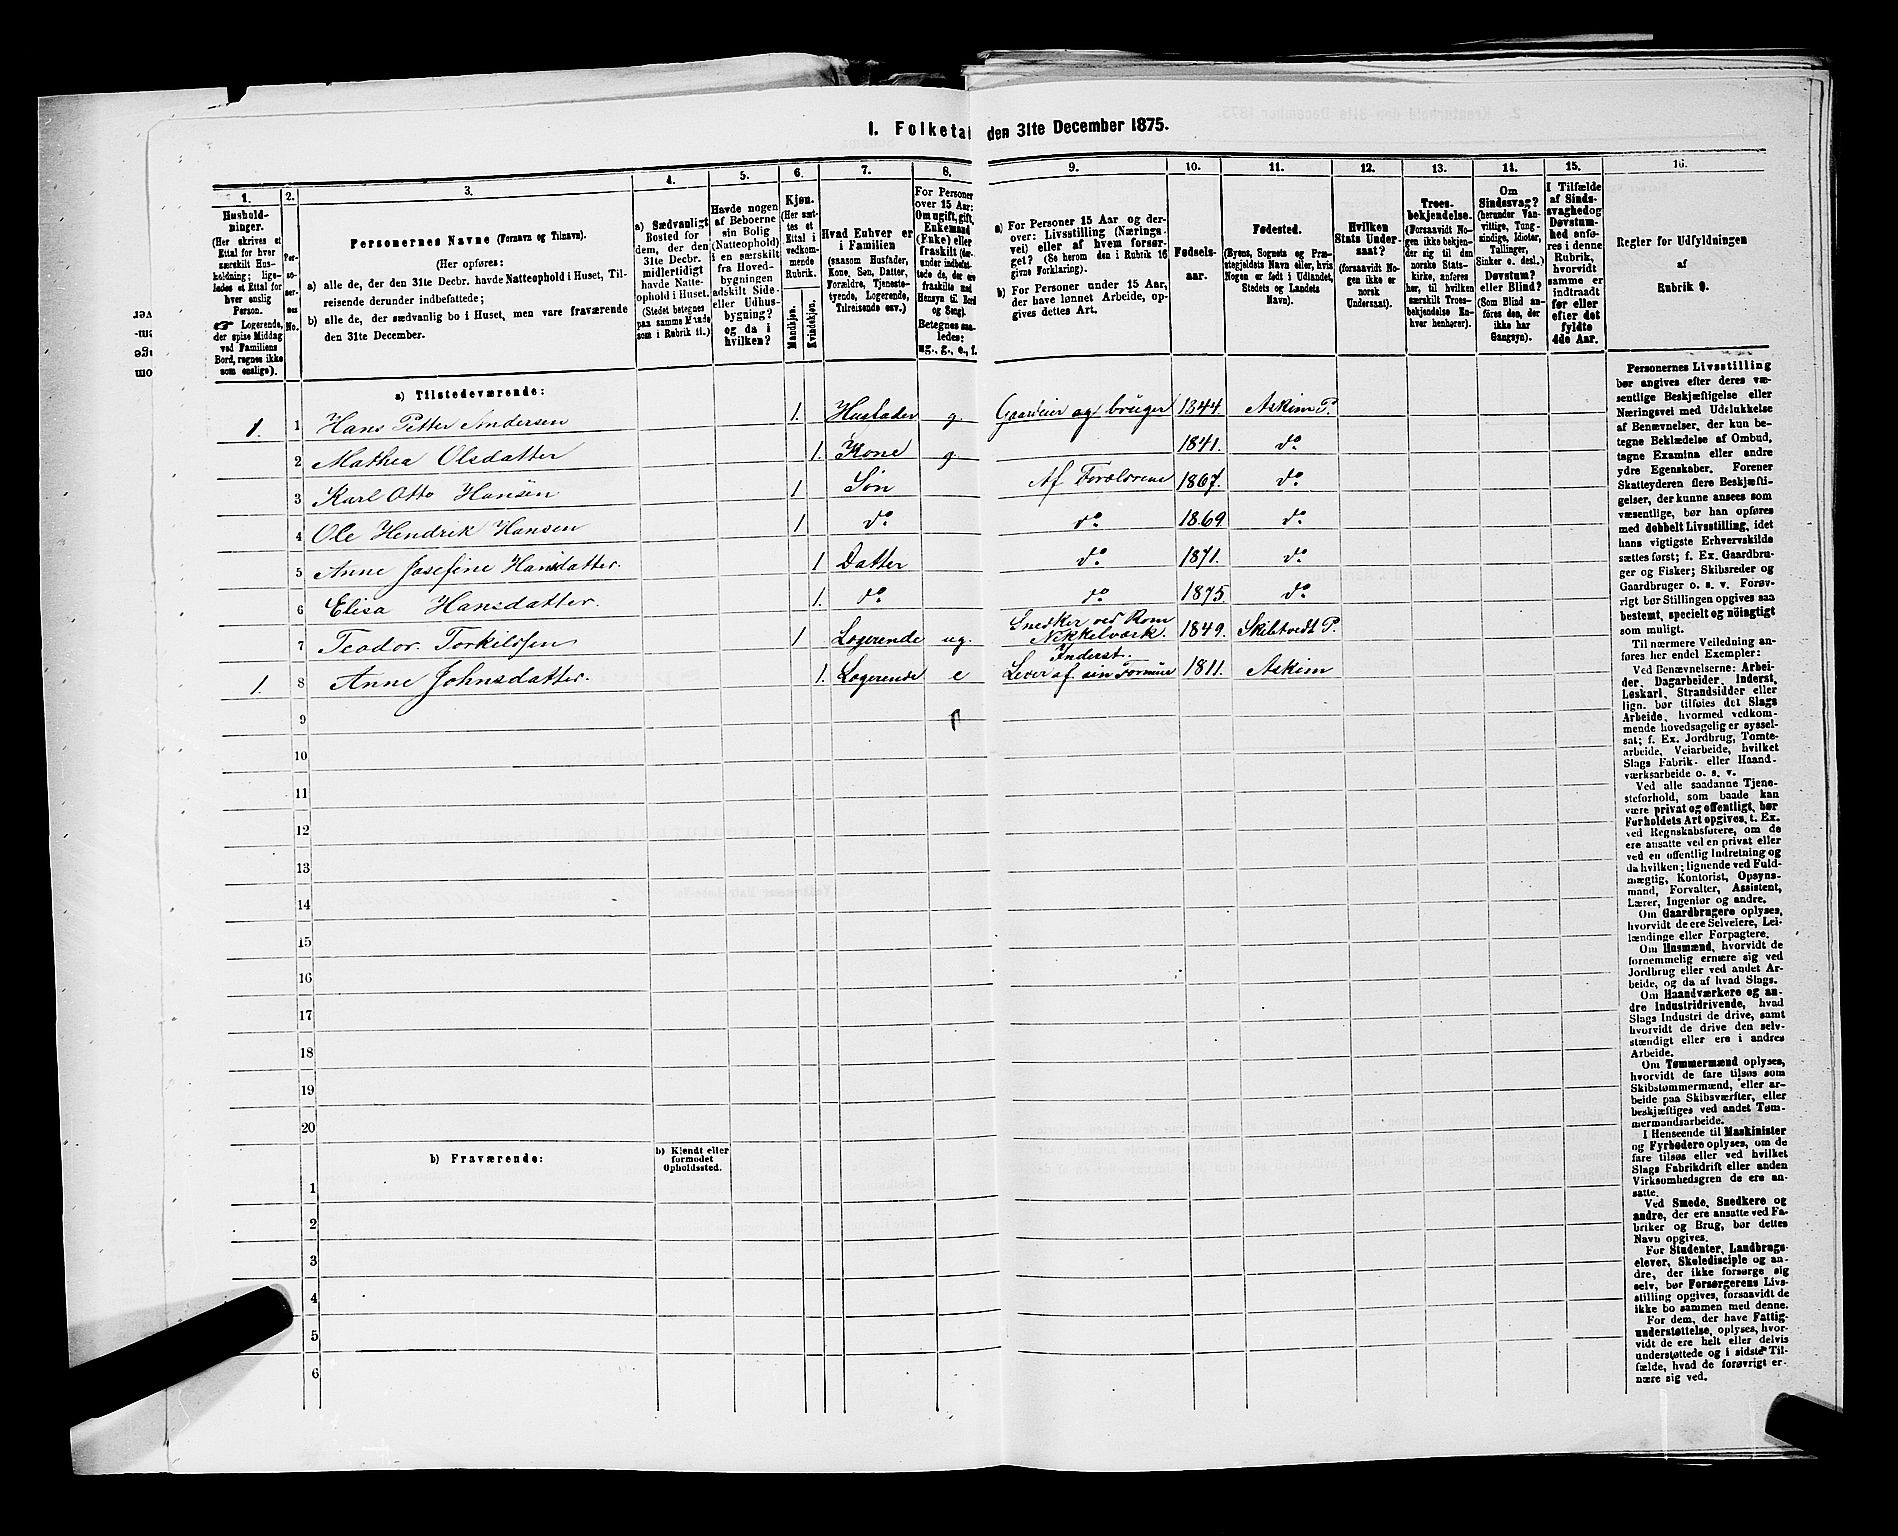 1. Folketal den 31te December 1875.
1. 2. 3. 4. 5. 6. 7. 8. 9. 10. 11. 12. 13. 14. 15. 16.
Hushold-
ninger.
(Her skrives et
Ettal for hver
særskilt Hus-
holdning; lige-
ledes et Ettal for
hver enslig
Person.
☞ Logerende,
der spise Middag
ved Familiens
Bord, regnes ikke
som enslige).
Per-
so-
ner-
nes
No.
Personernes Navne (Fornavn og Tilnavn).
(Her opføres:
a) alle de, der den 31te Decbr. havde Natteophold i Huset, Til-
reisende derunder indbefattede;
b) alle de, der sædvanlig bo i Huset, men vare fraværende
den 31te December.
a) Sædvanligt
Bosted for
dem, der den
31te Decbr.
midlertidigt
havde Natte-
ophold i Huset.
(Stedet betegnes
paa samme Maade
som i Rubrik 11.)
Havde nogen
af Beboerne
sin Bolig
(Natteophold)
i en særskilt
fra Hoved-
bygningen
adskilt Side-
eller Udhus-
bygning?
og da i
hvilken?
Kjøn.
(Her sæt-
tes et
Ettal i
vedkom-
mende
Rubrik.
Mandkjøn.
Kvindekjøn.
Hvad Enhver er
i Familien
(saasom Husfader,
Kone, Søn, Datter,
Forældre, Tjeneste-
tyende, Logerende,
Tilreisende osv.)
For Personer
over 15 Aar:
Om ugift, gift,
Enkemand
(Enke) eller
fraskilt (der-
under indbefat-
tede de, der ere
fraskilte med
Hensyn til Bord
og Seng).
Betegnes saa-
ledes:
ug., g., e., f.
a) For Personer 15 Aar og der-
over: Livsstilling (Nærings-
vei) eller af hvem forsør-
get? (Se herom den i Rubrik 16
givne Forklaring).
b) For Personer under 15 Aar,
der have lønnet Arbeide, op-
gives dettes Art.
Fødsels-
aar.
Fødested.
(Byens, Sognets og Præ-
stegjeldets Navn eller, hvis
Nogen er født i Udlandet,
Stedets og Landets
Navn).
Hvilken
Stats Under-
saat?
(forsaavidt No-
gen ikke er
norsk
Undersaat).
Troes-
bekjendelse.
(Forsaavidt No-
gen ikke bekjen-
der sig til den
norske Stats-
kirke, anføres
her, til hvilken
særskilt Troes-
bekjendelse En-
hver henhører).
Om
Sindssvag?
(herunder Van-
vittige, Tung-
sindige, Idioter,
Tullinger,
Sinker o. desl.)
Døvstum?
eller Blind?
(Som Blind an-
føres den, der
ikke har
Gangsyn).
I Tilfælde
af Sinds-
svaghed og
Døvstum-
hed anfø-
res i denne
Rubrik,
hvorvidt
samme er
indtraadt
før eller
efter det
fyldte
4de Aar.
Regler for Udfyldningen
af
Rubrik 9.
a) Tilstedeværende:
1. 1 Hans Petter Andersen 1. Husfader g. Gaardeier og bruger 1844. Askim P.
2 Mathea Olsdatter 1. Kone g. 1841. do
3 Karl Otto Hansen 1 Søn Af Forældrene 1867. do
4 Ole Hendrik Hansen 1 do do 1869 do
5 Anne Josefine Hansdatter. 1 Datter do 1871. do
6 Elisa Hansdatter. 1. do do 1875 do
7 Teodor. Torkelssen 1 Logerende ug. Snedker ved Rom
Nikkelværk. 1849. Skibtvedt P.
1. 8 Anne Johnsdatter. 1. Logerende e Inderst.
Lever af sin Formue 1811. Askim
9
10
11
12
13
14
15
16
17
18
19
20
b) Fraværende:
b) Kjendt eller
formodet
Opholdssted.
1
2
3
4
5
6
Personernes Livsstilling
bør angives efter deres væ-
sentlige Beskjæftigelse eller
Næringsvei med Udelukkelse
af Benævnelser, der kun be-
tegne Beklædelse af Ombud,
tagne Examina eller andre
ydre Egenskaber. Forener
Skatteyderen flere Beskjæfti-
gelser, der kunne ansees som
væsentlige, bør han opføres
med dobbelt Livsstilling, idet
hans vigtigste Erhvervskilde
sættes først; f. Ex. Gaardbru-
ger og Fisker; Skibsreder og
Gaardbruger o. s. v. Forøv-
rigt bør Stillingen opgives saa
bestemt, specielt og nöiagtigt
som muligt.
Til nærmere Veiledning an-
føres her endel Exempler:
Ved Benævnelserne: Arbei-
der, Dagarbeider, Inderst,
Løskarl, Strandsidder eller
lign. bør tilføies det Slags
Arbeide, hvormed vedkom-
mende hovedsagelig er syssel-
sat; f. Ex. Jordbrug, Tomte-
arbeide, Veiarbeide, hvilket
Slags Fabrik- eller Haand-
værksarbeide o. s. v.
Ved alle saadanne Tjene-
steforhold, som baade kan
være privat og offentligt, bør
Forholdets Art opgives, t. Ex.
ved Regnskabsførere, om de
ere ansatte ved en privat eller
ved en offentlig Indretning og
da hvilken; lignende ved Fuld-
mægtig, Kontorist, Opsyns-
mand, Forvalter, Assistent,
Lærer, Ingeniør og andre.
Om Gaardbrugere oplyses,
hvorvidt de ere Selveiere, Lei-
lændinge eller Forpagtere.
Om Husmænd, hvorvidt de
fornemmelig ernære sig ved
Jordbrug eller ved andet Ar-
beide, og da af hvad Slags.
Om Haandværkere og an-
dre Industridrivende, hvad
Slags Industri de drive, samt
hvorvidt de drive den selv-
stændigt eller ere i andres
Arbeide.
Om Tømmermænd oplyses,
hvorvidt de fare tilsøs som
Skibstømmermænd, eller ar-
beide paa Skibsværfter, eller
beskjæftiges ved andet Tøm-
mermandsarbeide.
I Henseende til Maskinister
og Fyrbødere oplyses, om de
fare tilsøs eller ved hvilket
Slags Fabrikdrift eller anden
Virksomhedsgren de ere an-
satte.
Ved Smede, Snedkere og
andre, der ere ansatte ved Fa-
briker og Brug, bør dettes
Navn opgives.
For Studenter, Landbrugs-
elever, Skoledisciple og an-
dre, der ikke forsørge sig
selv, bør Forsørgerens Livs-
stilling opgives, forsaavidt de
ikke bo sammen med denne.
For dem, der have Fattig-
understøttelse, oplyses, hvor-
vidt de ere helt eller delvis
understøttede og i sidste Til-
fælde, hvad de forøvrigt er-
nære sig ved.